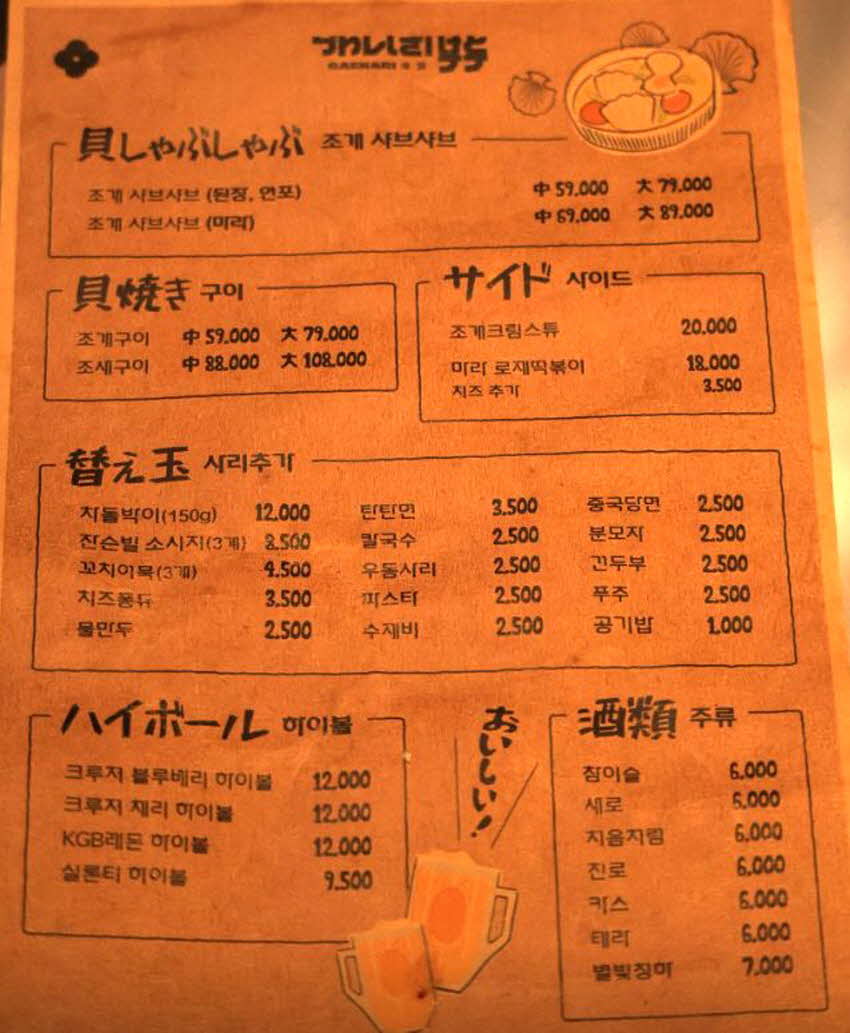 貝しゃぶしゃぶ 조개 샤브샤브
조개 샤브샤브 (된장, 연포) 中 59,000 大 79,000
조개 샤브샤브 (마라) 中 69,000 大 89,000
貝焼き 구이
조개구이 中 59,000 大 79,000
조새구이 中 88,000 大 108,000
サイド 사이드
조개크림스튜 20,000
마라 로제떡볶이 18,000
치즈 추가 3,500
替え玉 사리추가
차돌박이(150g) 12,000
잔슨빌 소시지(3개) 8,500
꼬치어묵(3개) 4,500
치즈퐁듀 3,500
물만두 2,500
탄탄면 3,500
칼국수 2,500
우동사리 2,500
파스타 2,500
수제비 2,500
중국당면 2,500
분모자 2,500
건두부 2,500
푸주 2,500
공기밥 1,000
ハイボール 하이볼
크루저 블루베리 하이볼 12,000
크루저 체리 하이볼 12,000
KGB레몬 하이볼 12,000
실론티 하이볼 9,500
おいしい!
酒類 주류
참이슬 6,000
새로 6,000
처음처럼 6,000
진로 6,000
카스 6,000
테라 6,000
별빛청하 7,000